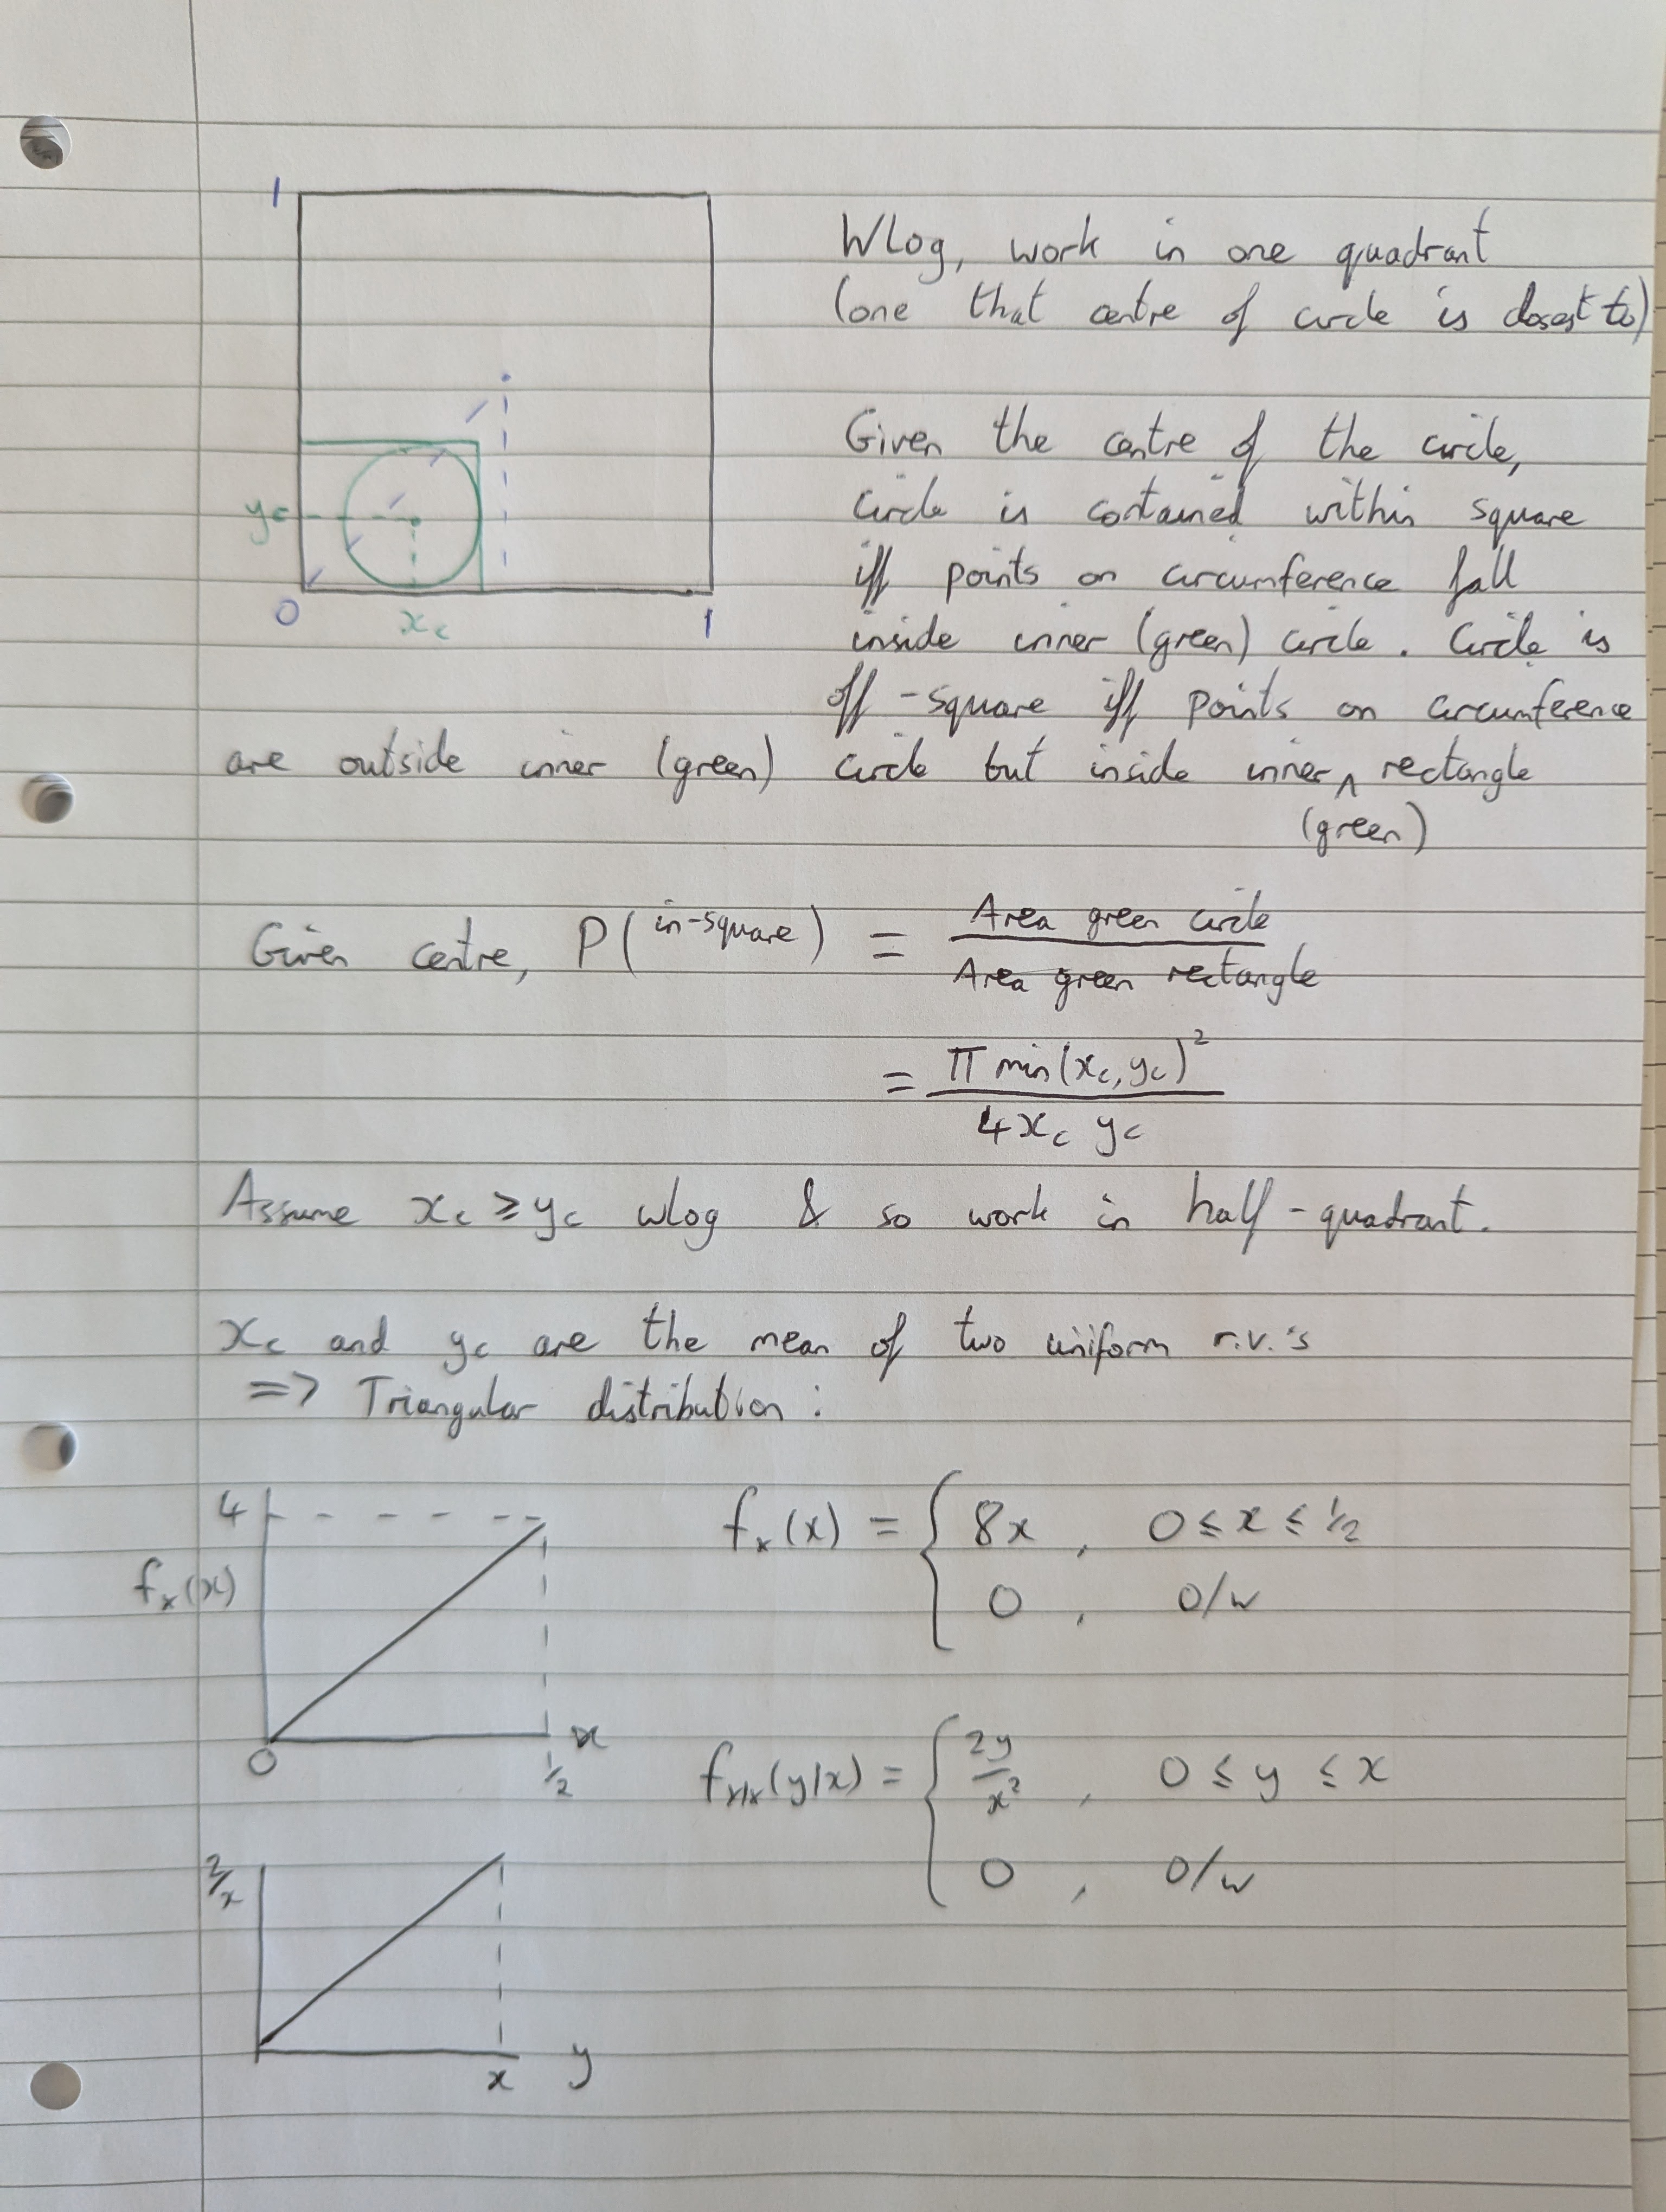 1
Wlog, work in one quadrant
(one that centre of circle is closest to)
Given the centre of the circle,
circle is contained within square
iff points on circumference fall
inside inner (green) circle. Circle is
off-square iff points on circumference
are outside inner (green) circle but inside inner ∧ rectangle
(green)
yc
0
xc
1
Given centre, P(in-square) = Area green circle / Area green rectangle
= π min(xc, yc)² / 4xc yc
Assume xc ≥ yc wlog & so work in half-quadrant.
xc and yc are the mean of two uniform r.v.'s
=> Triangular distribution:
4
fx(x)
0
1/2
x
fx(x) = { 8x , 0 ≤ x ≤ 1/2
0 , o/w
fY|X(y|x) = { 2y/x² , 0 ≤ y ≤ x
0 , o/w
2/x
x
y